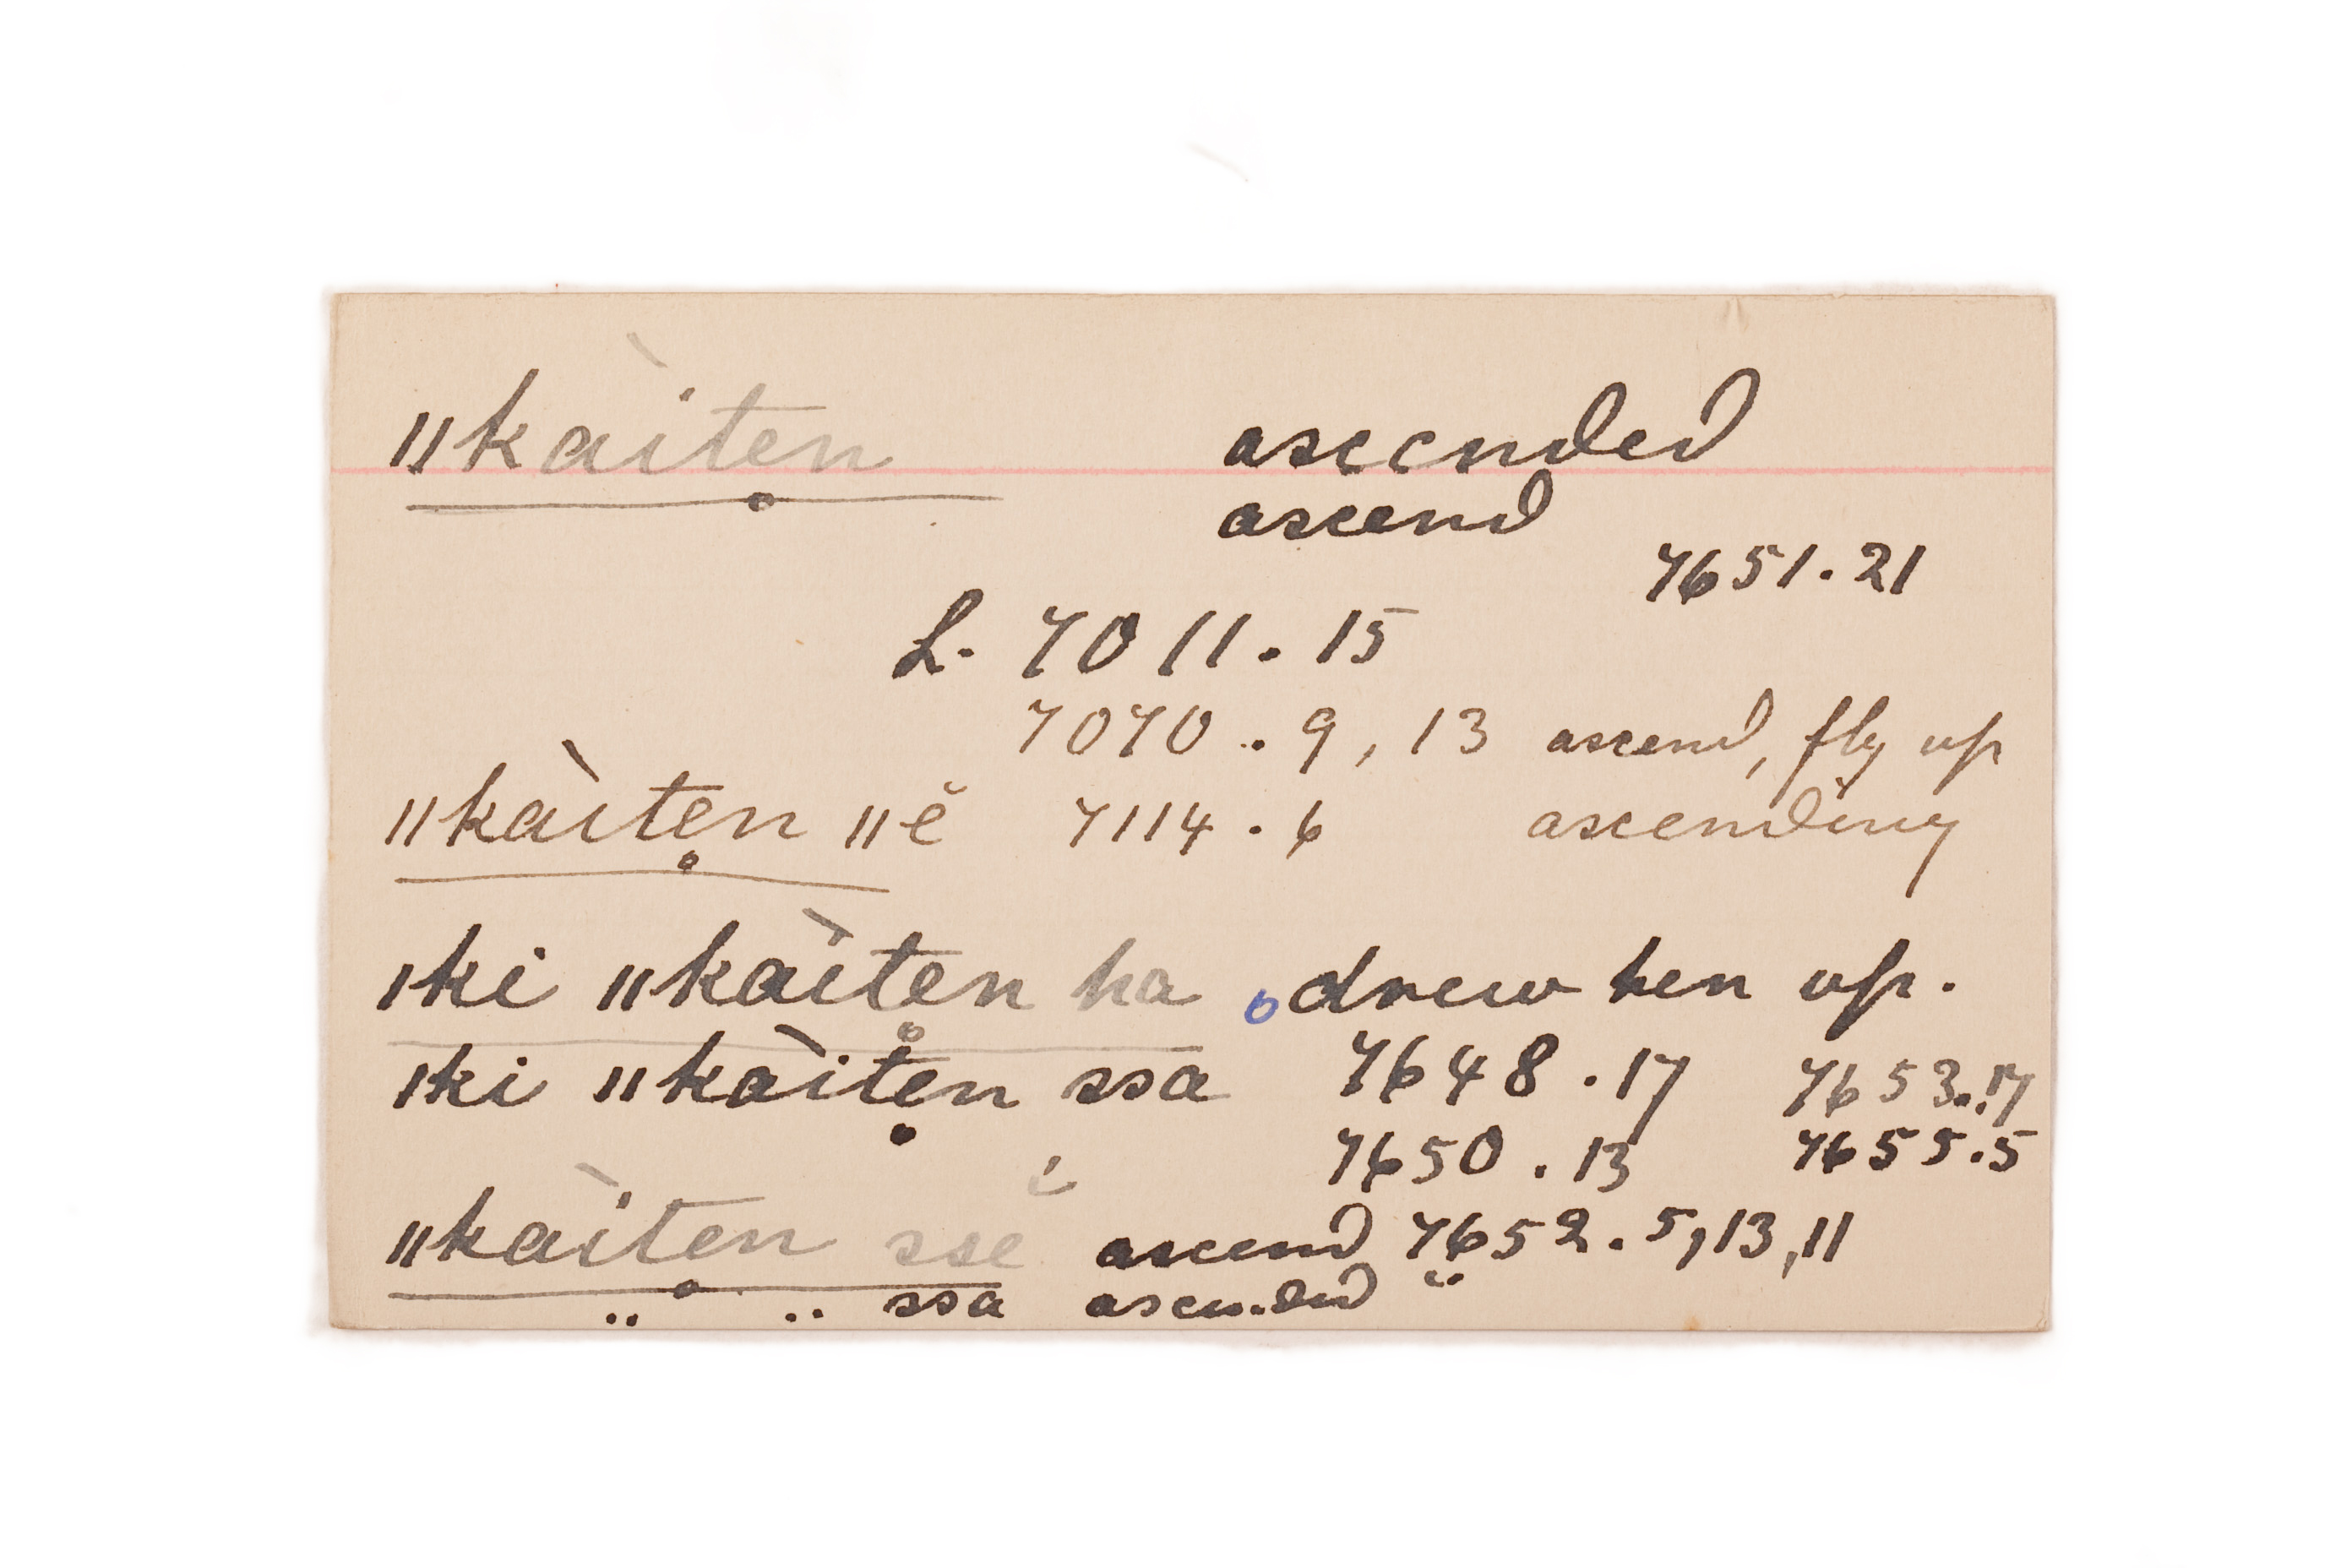 ǁkàitẹn ascended
ascend
7651.21
L. 7011.15
7070..9, 13 ascend, fly up
ǁkàitẹn ǁĕ 7114.6 ascending
ǀki ǁkàitẹn ha drew her up.
ǀki ǁkàitẹn ssa 7648.17 7653.17
7650.13 7655.5
ǁkàitẹn sse ascend 7652.5,13,11
.. .. ssa ascended ..